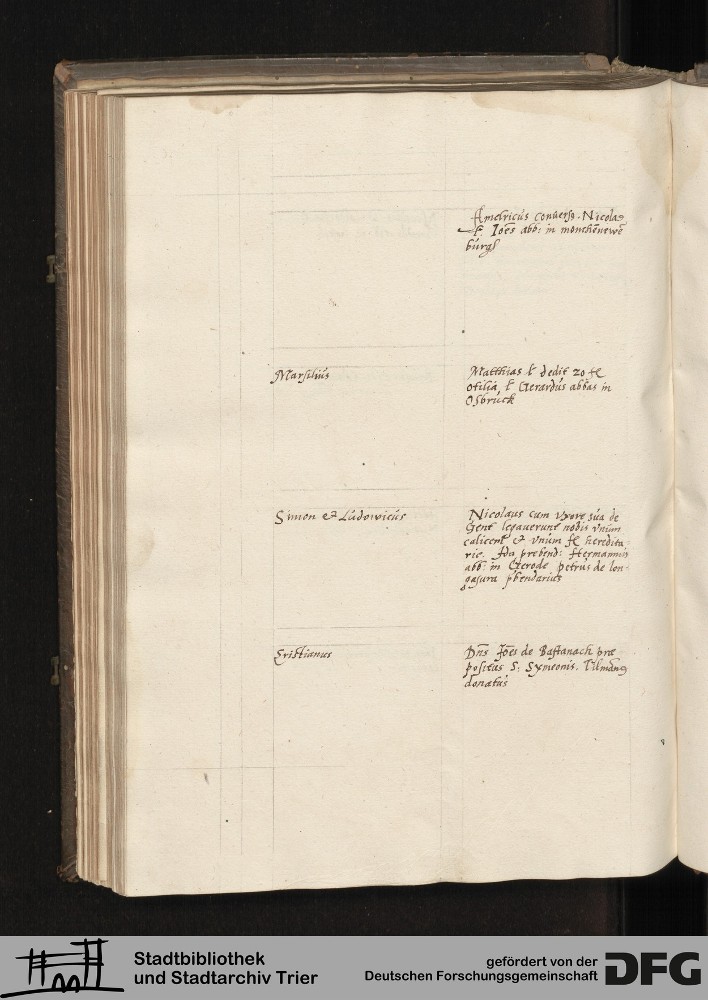 Amelricus conuerso. Nicola9
Pr. Joes abb: in monchenewe
burgk
Marsilius
Matthias Pr dedit 20 fl
otilia, Pr Gerardus abbas in
Osbruck
Simon et Ludowicus
Nicolaus cum vxore sua de
Gent legauerunt nobis vnum
calicem et vnum fl heredita
rie. Ida prebend: Hermannus
abb: in Gerode petrus de lon-
gasura pbendarius
Cristianus
Dns Joes de Bastanach præ
positus S: Symeonis. Tilman9
donatus
Stadtbibliothek
und Stadtarchiv Trier
gefördert von der
Deutschen Forschungsgemeinschaft
DFG